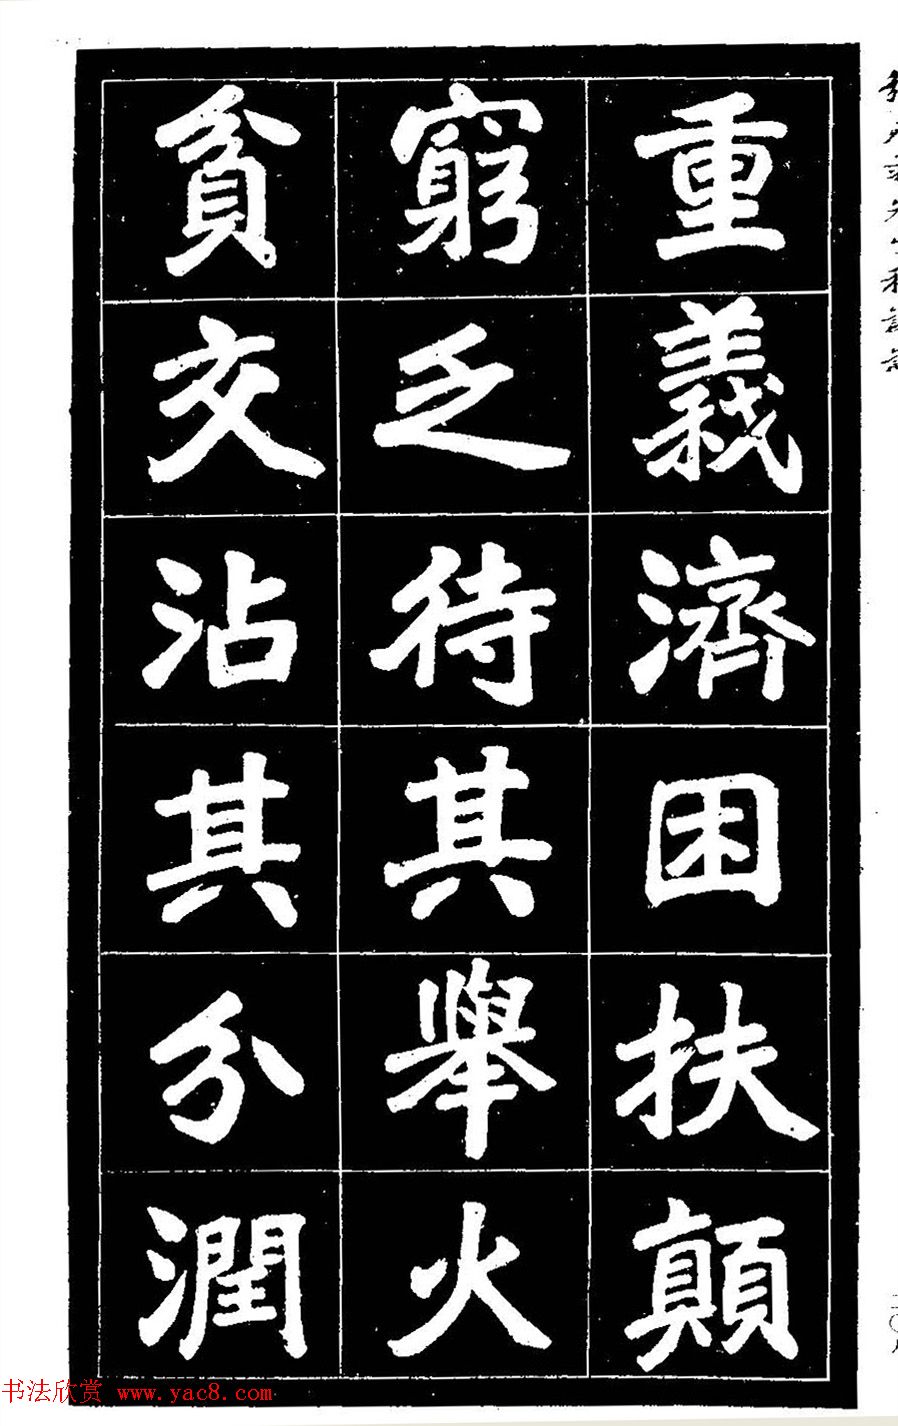 重義濟困扶顛
窮乏待其舉火
貧交沾其分潤
书法欣赏 www.yac8.com